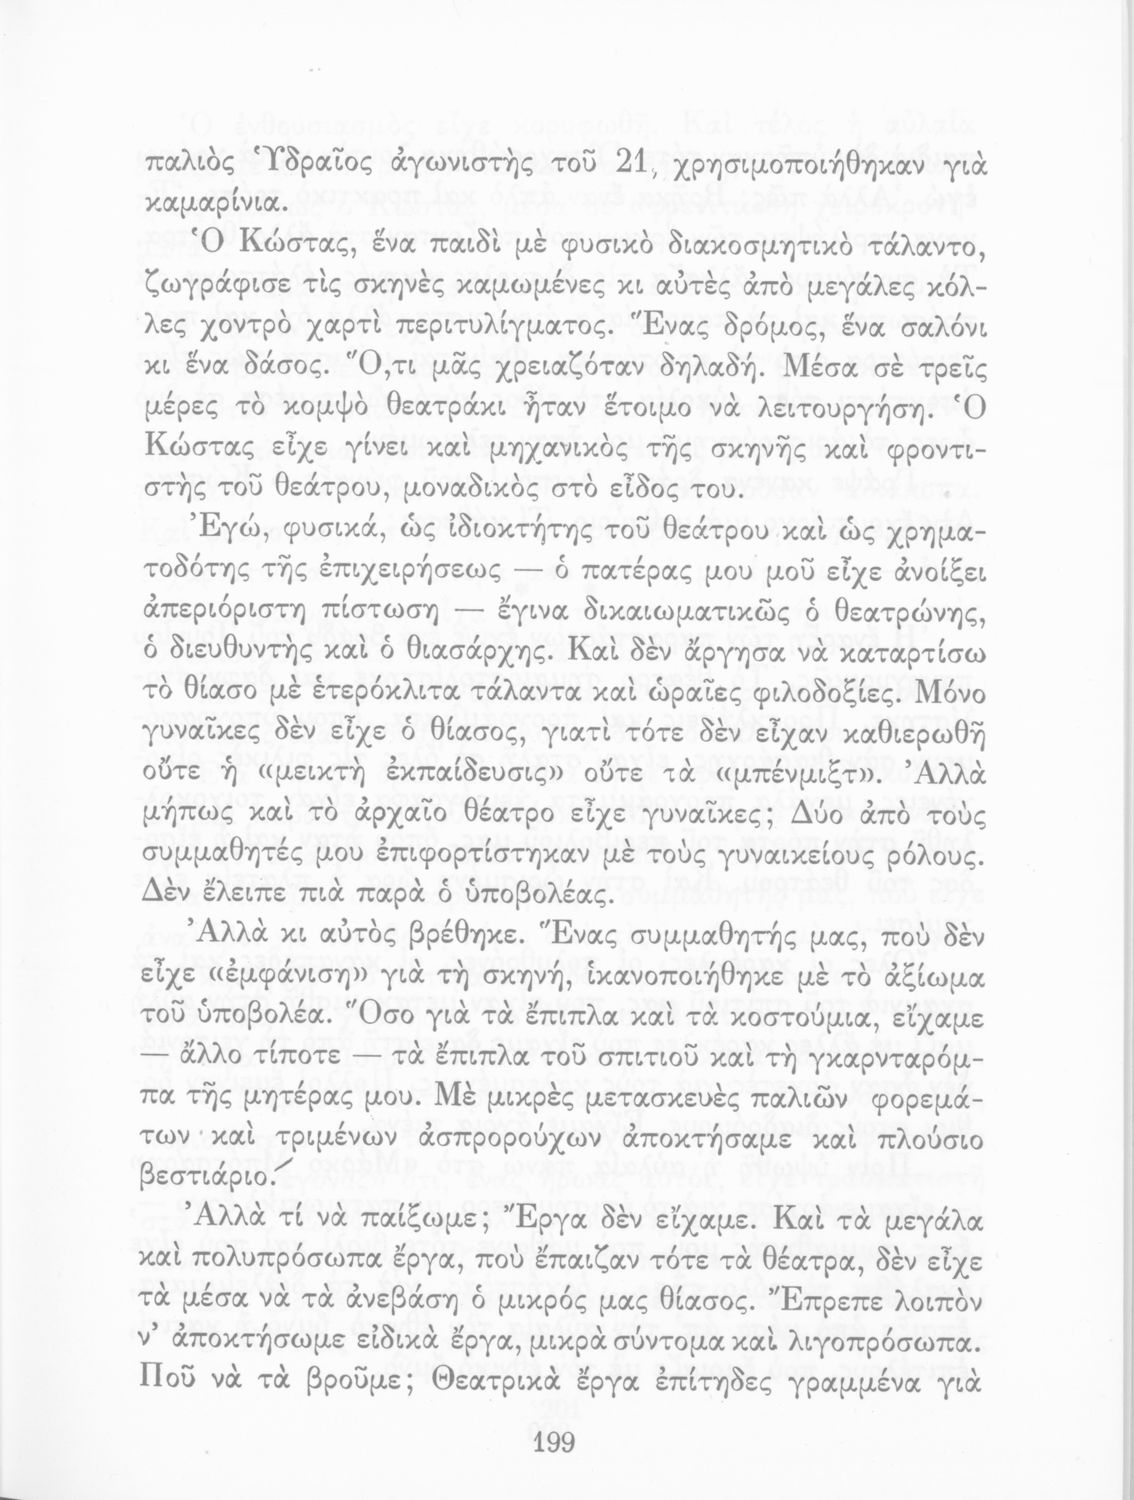 παλιὸς Ὑδραῖος ἀγωνιστὴς τοῦ 21, χρησιμοποιήθηκαν γιὰ
καμαρίνια.
Ὁ Κώστας, ἕνα παιδὶ μὲ φυσικὸ διακοσμητικὸ τάλαντο,
ζωγράφισε τὶς σκηνὲς καμωμένες κι αὐτὲς ἀπὸ μεγάλες κόλ-
λες χοντρὸ χαρτὶ περιτυλίγματος. Ἕνας δρόμος, ἕνα σαλόνι
κι ἕνα δάσος. Ὅ,τι μᾶς χρειαζόταν δηλαδή. Μέσα σὲ τρεῖς
μέρες τὸ κομψὸ θεατράκι ἦταν ἕτοιμο νὰ λειτουργήση. Ὁ
Κώστας εἶχε γίνει καὶ μηχανικὸς τῆς σκηνῆς καὶ φροντι-
στὴς τοῦ θεάτρου, μοναδικὸς στὸ εἶδος του.
Ἐγώ, φυσικά, ὡς ἰδιοκτήτης τοῦ θεάτρου καὶ ὡς χρημα-
τοδότης τῆς ἐπιχειρήσεως — ὁ πατέρας μου μοῦ εἶχε ἀνοίξει
ἀπεριόριστη πίστωση — ἔγινα δικαιωματικῶς ὁ θεατρώνης,
ὁ διευθυντὴς καὶ ὁ θιασάρχης. Καὶ δὲν ἄργησα νὰ καταρτίσω
τὸ θίασο μὲ ἑτερόκλιτα τάλαντα καὶ ὡραῖες φιλοδοξίες. Μόνο
γυναῖκες δὲν εἶχε ὁ θίασος, γιατὶ τότε δὲν εἶχαν καθιερωθῆ
οὔτε ἡ «μεικτὴ ἐκπαίδευσις» οὔτε τὰ «μπένμιξτ». Ἀλλὰ
μήπως καὶ τὸ ἀρχαῖο θέατρο εἶχε γυναῖκες; Δύο ἀπὸ τοὺς
συμμαθητές μου ἐπιφορτίστηκαν μὲ τοὺς γυναικείους ρόλους.
Δὲν ἔλειπε πιὰ παρὰ ὁ ὑποβολέας.
Ἀλλὰ κι αὐτὸς βρέθηκε. Ἕνας συμμαθητής μας, ποὺ δὲν
εἶχε «ἐμφάνιση» γιὰ τὴ σκηνή, ἱκανοποιήθηκε μὲ τὸ ἀξίωμα
τοῦ ὑποβολέα. Ὅσο γιὰ τὰ ἔπιπλα καὶ τὰ κοστούμια, εἴχαμε
— ἄλλο τίποτε — τὰ ἔπιπλα τοῦ σπιτιοῦ καὶ τὴ γκαρνταρόμ-
πα τῆς μητέρας μου. Μὲ μικρὲς μετασκευὲς παλιῶν φορεμά-
των καὶ τριμένων ἀσπρορούχων ἀποκτήσαμε καὶ πλούσιο
βεστιάριο.
Ἀλλὰ τί νὰ παίξωμε; Ἔργα δὲν εἴχαμε. Καὶ τὰ μεγάλα
καὶ πολυπρόσωπα ἔργα, ποὺ ἔπαιζαν τότε τὰ θέατρα, δὲν εἶχε
τὰ μέσα νὰ τὰ ἀνεβάση ὁ μικρός μας θίασος. Ἔπρεπε λοιπὸν
ν' ἀποκτήσωμε εἰδικὰ ἔργα, μικρὰ σύντομα καὶ λιγοπρόσωπα.
Ποῦ νὰ τὰ βροῦμε; Θεατρικὰ ἔργα ἐπίτηδες γραμμένα γιὰ
199